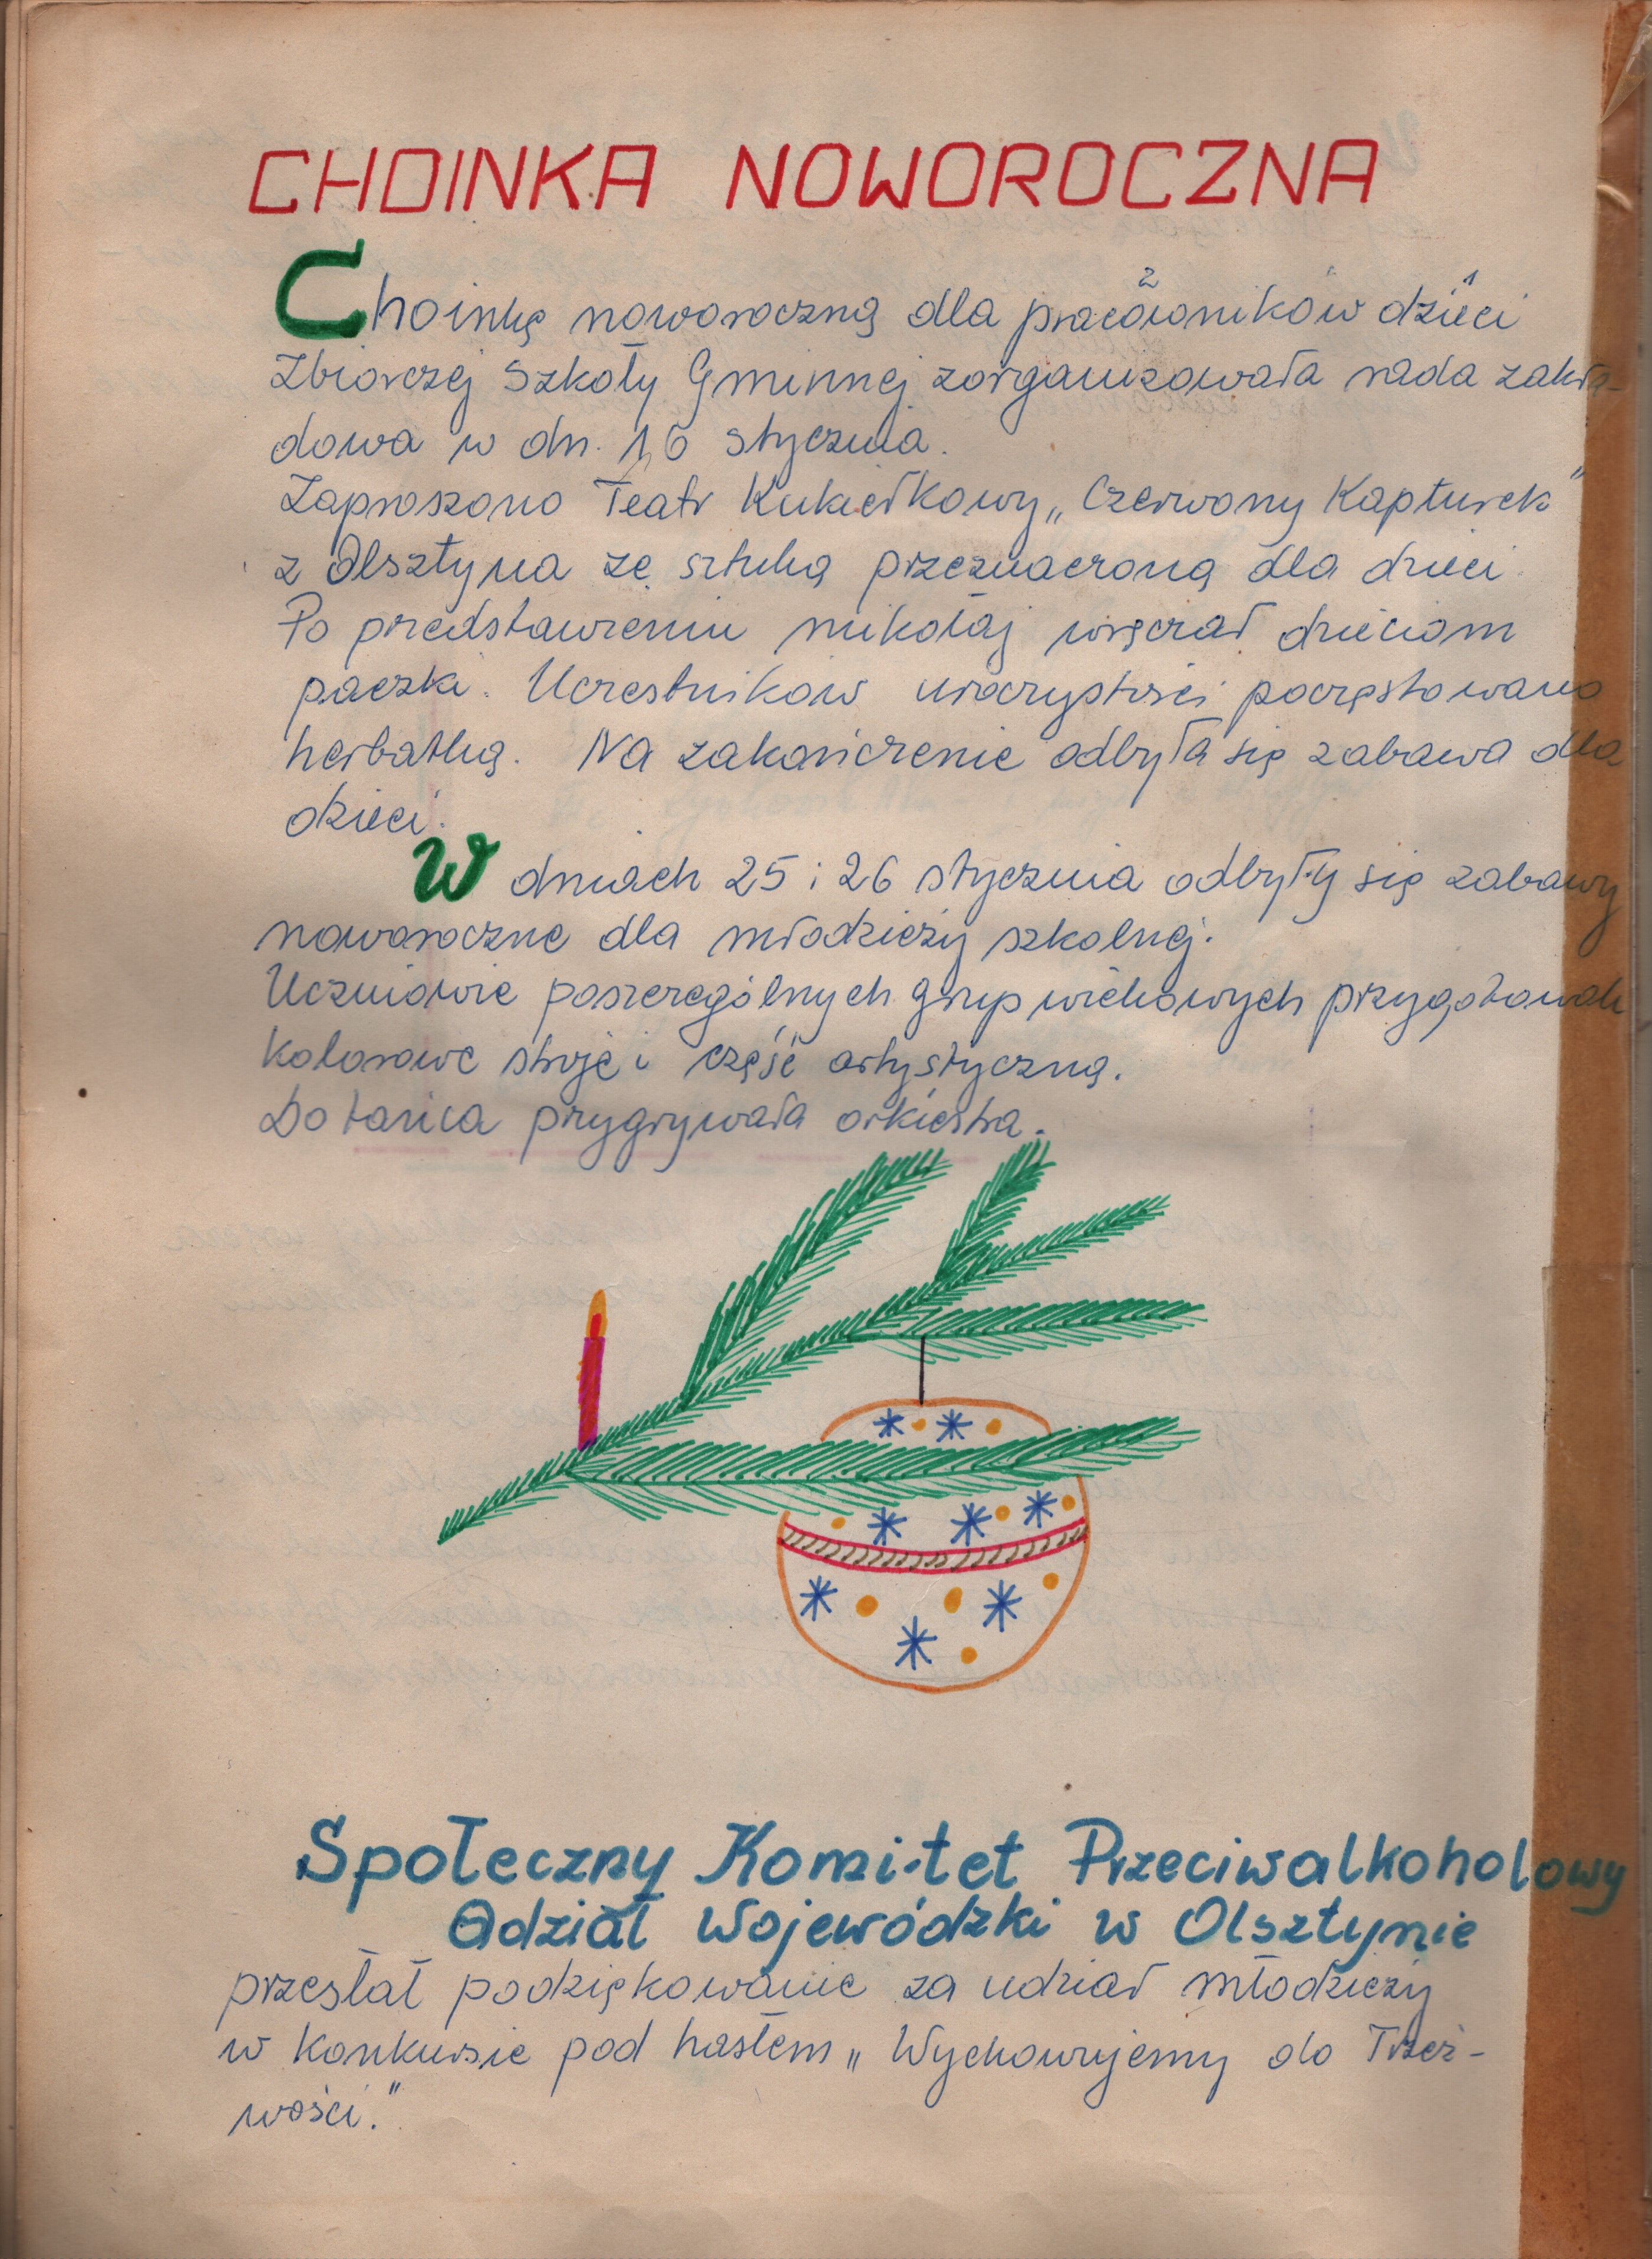 CHOINKA NOWOROCZNA
Choinkę noworoczną dla pracowników dzieci
Zbiorczej Szkoły Gminnej zorganizowała rada zakła-
dowa w dn. 16 stycznia.
Zaproszono Teatr Kukiełkowy „Czerwony Kapturek"
z Olsztyna ze sztuką przeznaczoną dla dzieci.
Po przedstawieniu mikołaj wręczał dzieciom
paczki. Uczestników uroczystości poczęstowano
herbatką. Na zakończenie odbyła się zabawa dla
dzieci.
W dniach 25 i 26 stycznia odbyły się zabawy
noworoczne dla młodzieży szkolnej.
Uczniowie poszczególnych grup wiekowych przygotowali
kolorowe stroje i część artystyczną.
Do tańca przygrywała orkiestra.
Społeczny Komitet Przeciwalkoholowy
Odział Wojewódzki w Olsztynie
przesłał podziękowanie za udział młodzieży
w konkursie pod hasłem „Wychowujemy do Trzeź-
wości."